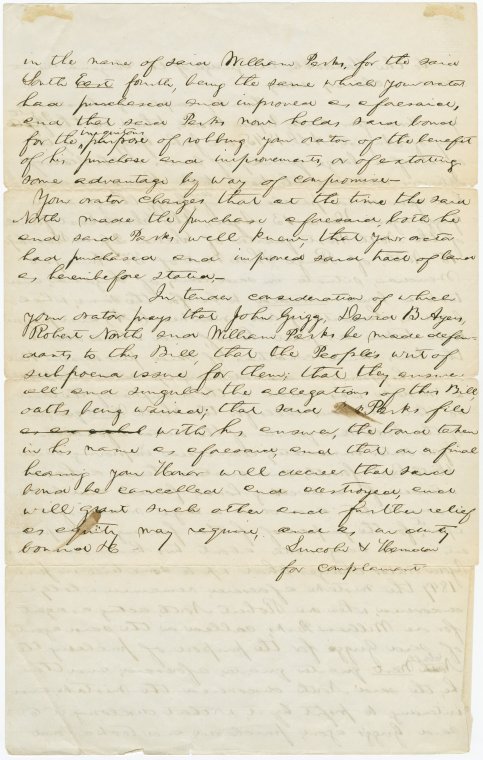 in the name of said William Parks, for the said
South East fourth, being the same which your orator
had purchased and improved as aforesaid,
and that said Parks now holds said bond
for the iniquitous purpose of robbing your orator of the benefit
of his purchase and improvements, or of extorting
some advantage by way of compromise—
Your orator charges that at the time the said
North made the purchase aforesaid both he
and said Parks well knew, that your orator
had purchased and improved said tract of land
as hereinbefore stated—
In tender consideration of which
your orator prays that John Grigg, David B. Ayers,
Robert North and William Parks be made defen-
dants to this Bill that the People's writ of
subpoena issue for them; that they answer
all and singular the allegations of this Bill
oaths being waived; that said Parks file
with his answer, the bond taken
in his name as aforesaid, and that on a final
hearing your Honor will decree that said
bond be cancelled and destroyed, and
will grant such other and further relief
as equity may require, and as in duty
bound &c
Lincoln & Herndon
for complainant